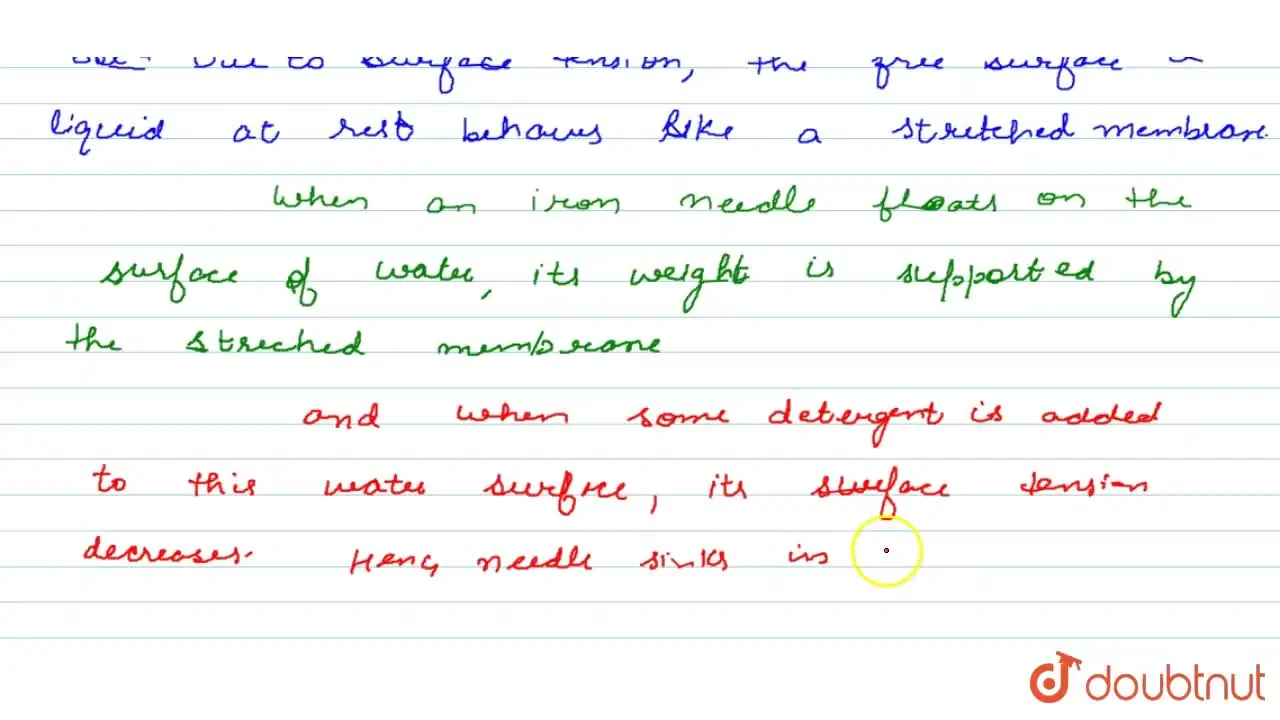 Due to surface tension, the free surface
liquid at rest behaves like a stretched membrane.
When an iron needle floats on the
surface of water, its weight is supported by
the streched membrane
and when some detergent is added
to this water surface, its surface tension
decreases. Henc needle sinks in
doubtnut